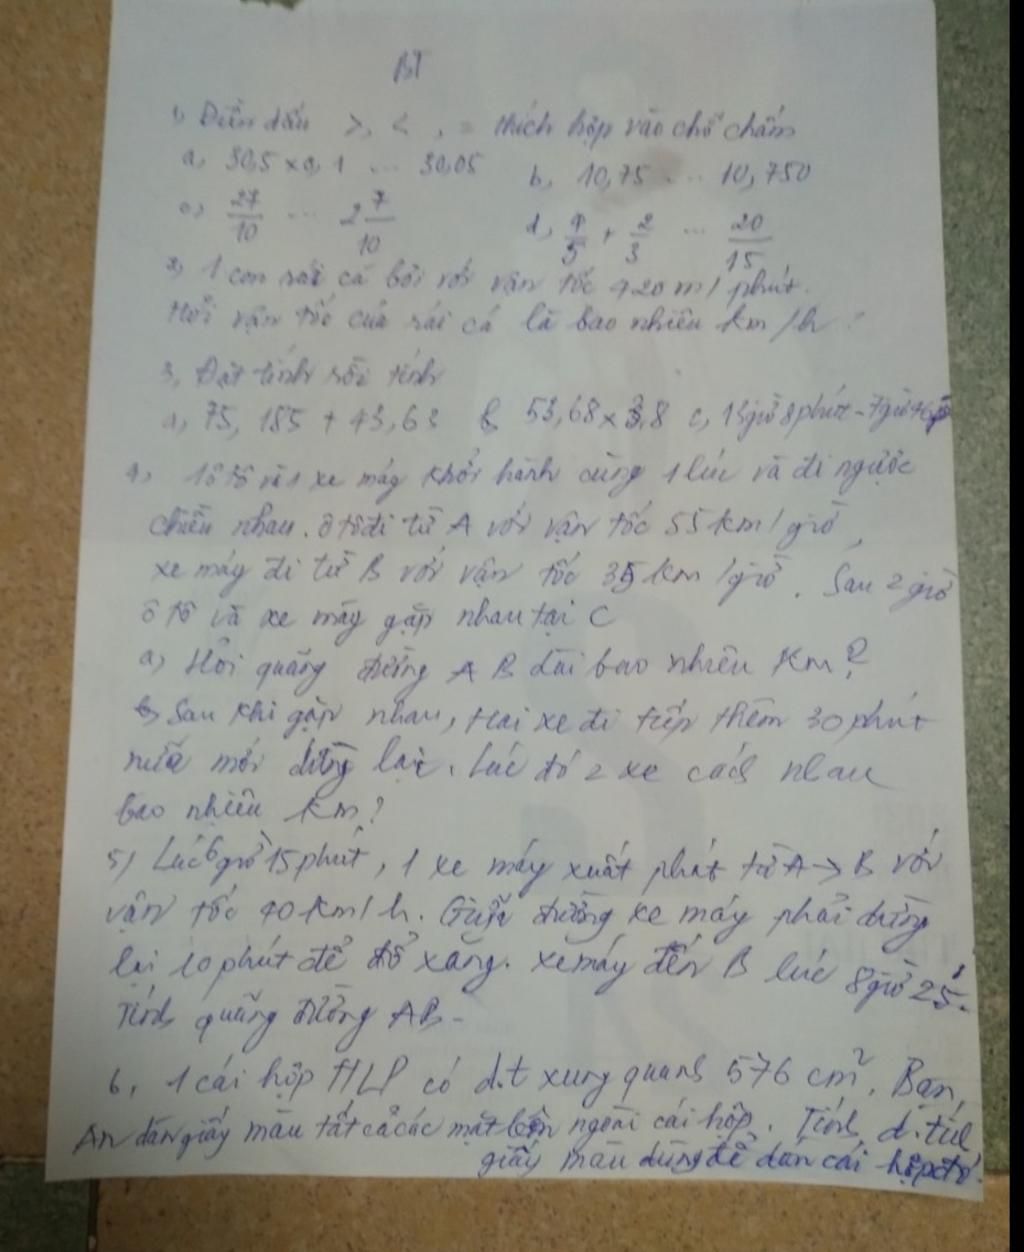 BT
1, Điền dấu >, <, = thích hợp vào chỗ chấm
a, 30,5 x 0,1 ... 30,05 b, 10,75 ... 10,750
c, 27/10 ... 2 7/10 d, 4/5 + 2/3 ... 20/15
2, 1 con rái cá bơi với vận tốc 420 m/phút.
Hỏi vận tốc của rái cá là bao nhiêu km/h?
3, Đặt tính rồi tính
a, 75,185 + 43,63 b, 53,68 x 3,8 c, 13 giờ 8 phút - 7 giờ
4, 1 ô tô và 1 xe máy khởi hành cùng 1 lúc và đi ngược
chiều nhau. ô tô đi từ A với vận tốc 55 km/giờ,
xe máy đi từ B với vận tốc 35 km/giờ. Sau 2 giờ
ô tô và xe máy gặp nhau tại C
a, Hỏi quãng đường AB dài bao nhiêu km?
b, Sau khi gặp nhau, Hai xe đi tiếp thêm 30 phút
nữa mới dừng lại. Lúc đó 2 xe cách nhau
bao nhiêu km?
5, Lúc 6 giờ 15 phút, 1 xe máy xuất phát từ A → B với
vận tốc 40 km/h. Giữa đường xe máy phải dừng
lại 10 phút để đổ xăng. xe máy đến B lúc 8 giờ 25'.
Tính quãng đường AB-
6, 1 cái hộp HLP có d.t xung quanh 576 cm². Bạn
An dán giấy màu tất cả các mặt bên ngoài cái hộp. Tính d.tích
giấy màu dùng để dán cái hộp đó.